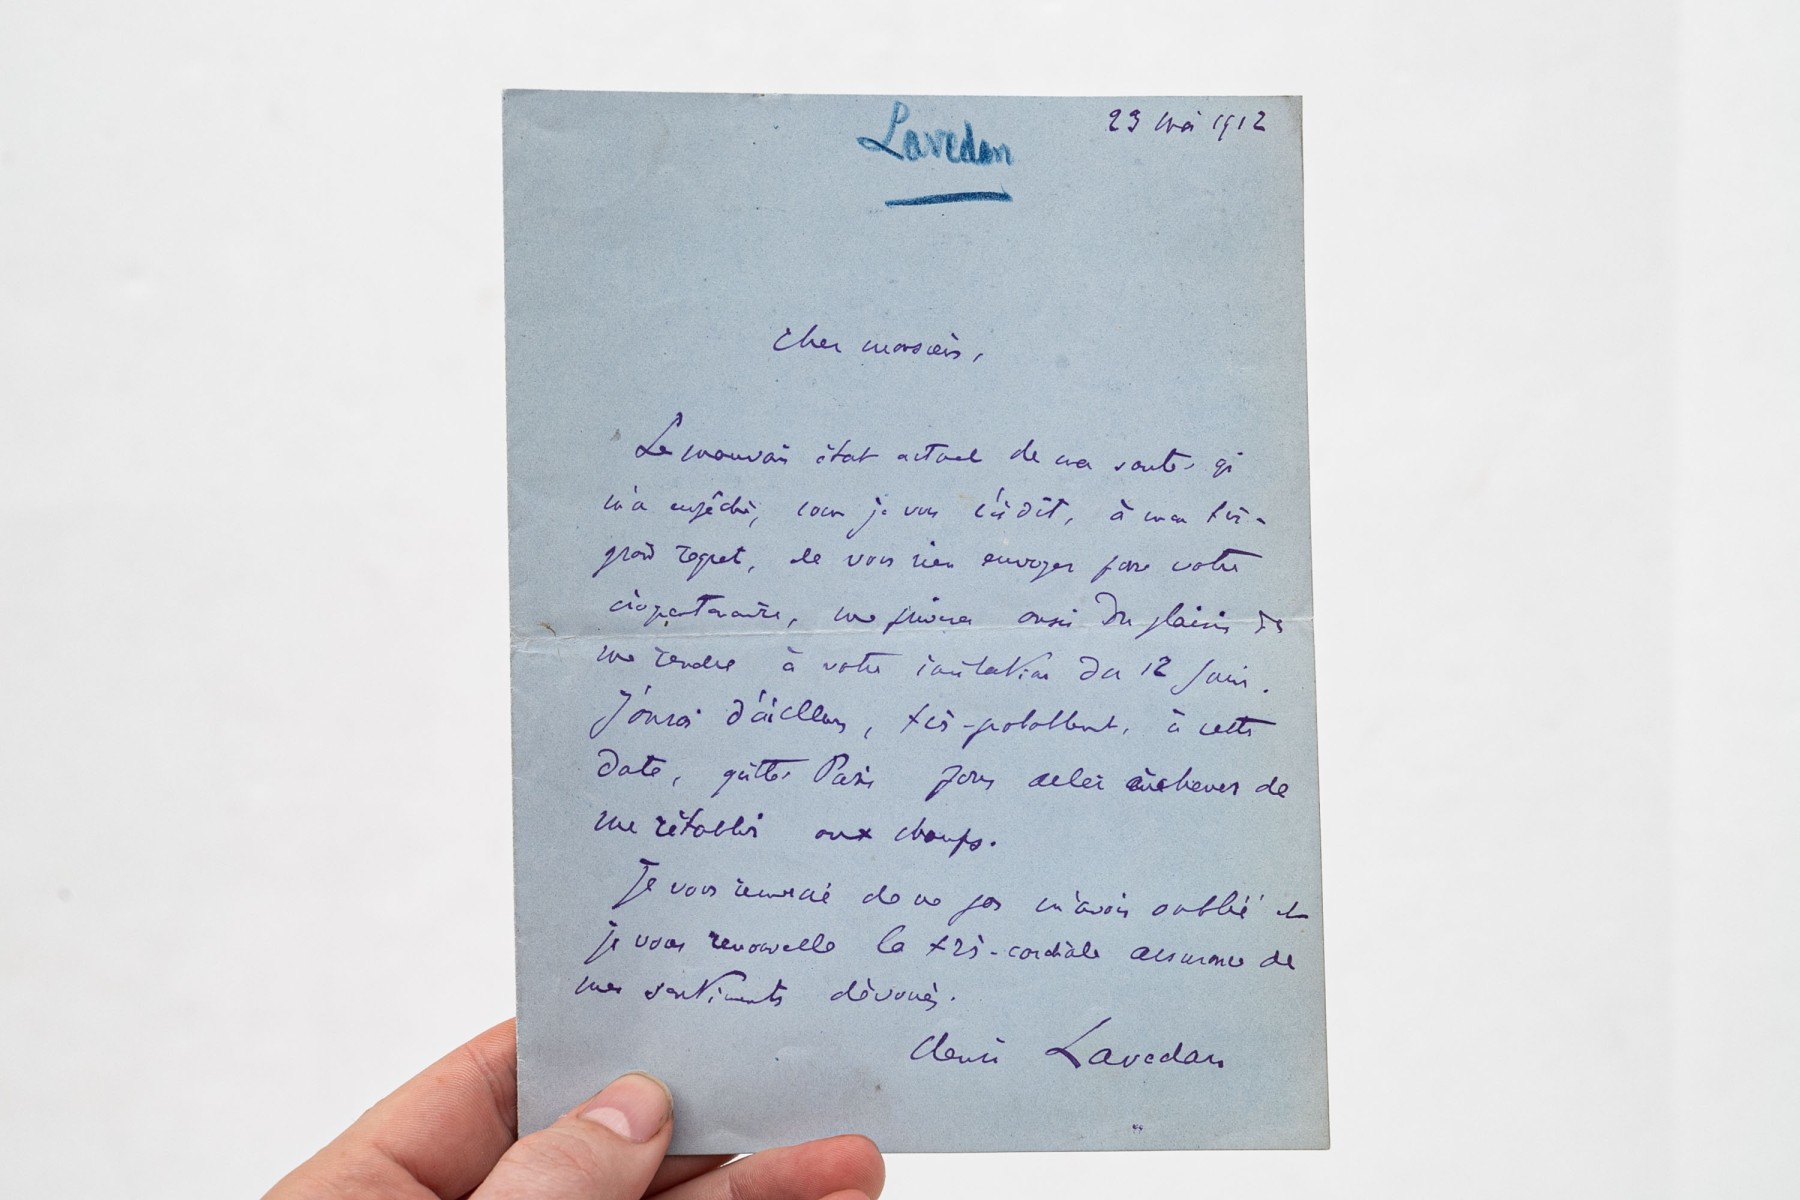 Lavedan
23 mai 1912
Cher monsieur,
Le mauvais état actuel de ma santé, qui
m'a empêché, comme je vous l'ai dit, à mon très-
grand regret, de vous rien envoyer pour votre
cinquantenaire, me privera aussi du plaisir de
me rendre à votre invitation du 12 Juin.
J'aurai d'ailleurs, très-probablement, à cette
date, quitté Paris pour aller achever de
me rétablir aux champs.
Je vous remercie de ne pas m'avoir oublié et
je vous renouvelle la très-cordiale assurance de
mes sentiments dévoués.
Henri Lavedan